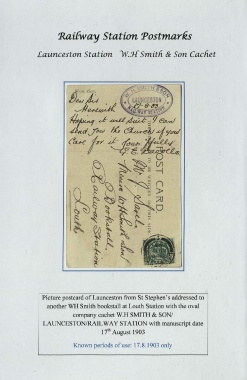 Railway Station Postmarks
Launceston Station W.H Smith & Son Cachet
W.H.SMITH & SON
LAUNCESTON
17-8-03
RAILWAY STATION
Dear Sir
Herewith
Hoping it will suit I can
send you the Church if you
care for it Yours
POST CARD.
Bookstall
Railway Station
Louth
Picture postcard of Launceston from St Stephen's addressed to
another WH Smith bookstall at Louth Station with the oval
company cachet W.H SMITH & SON/
LAUNCESTON/RAILWAY STATION with manuscript date
17th August 1903
Known periods of use: 17.8.1903 only